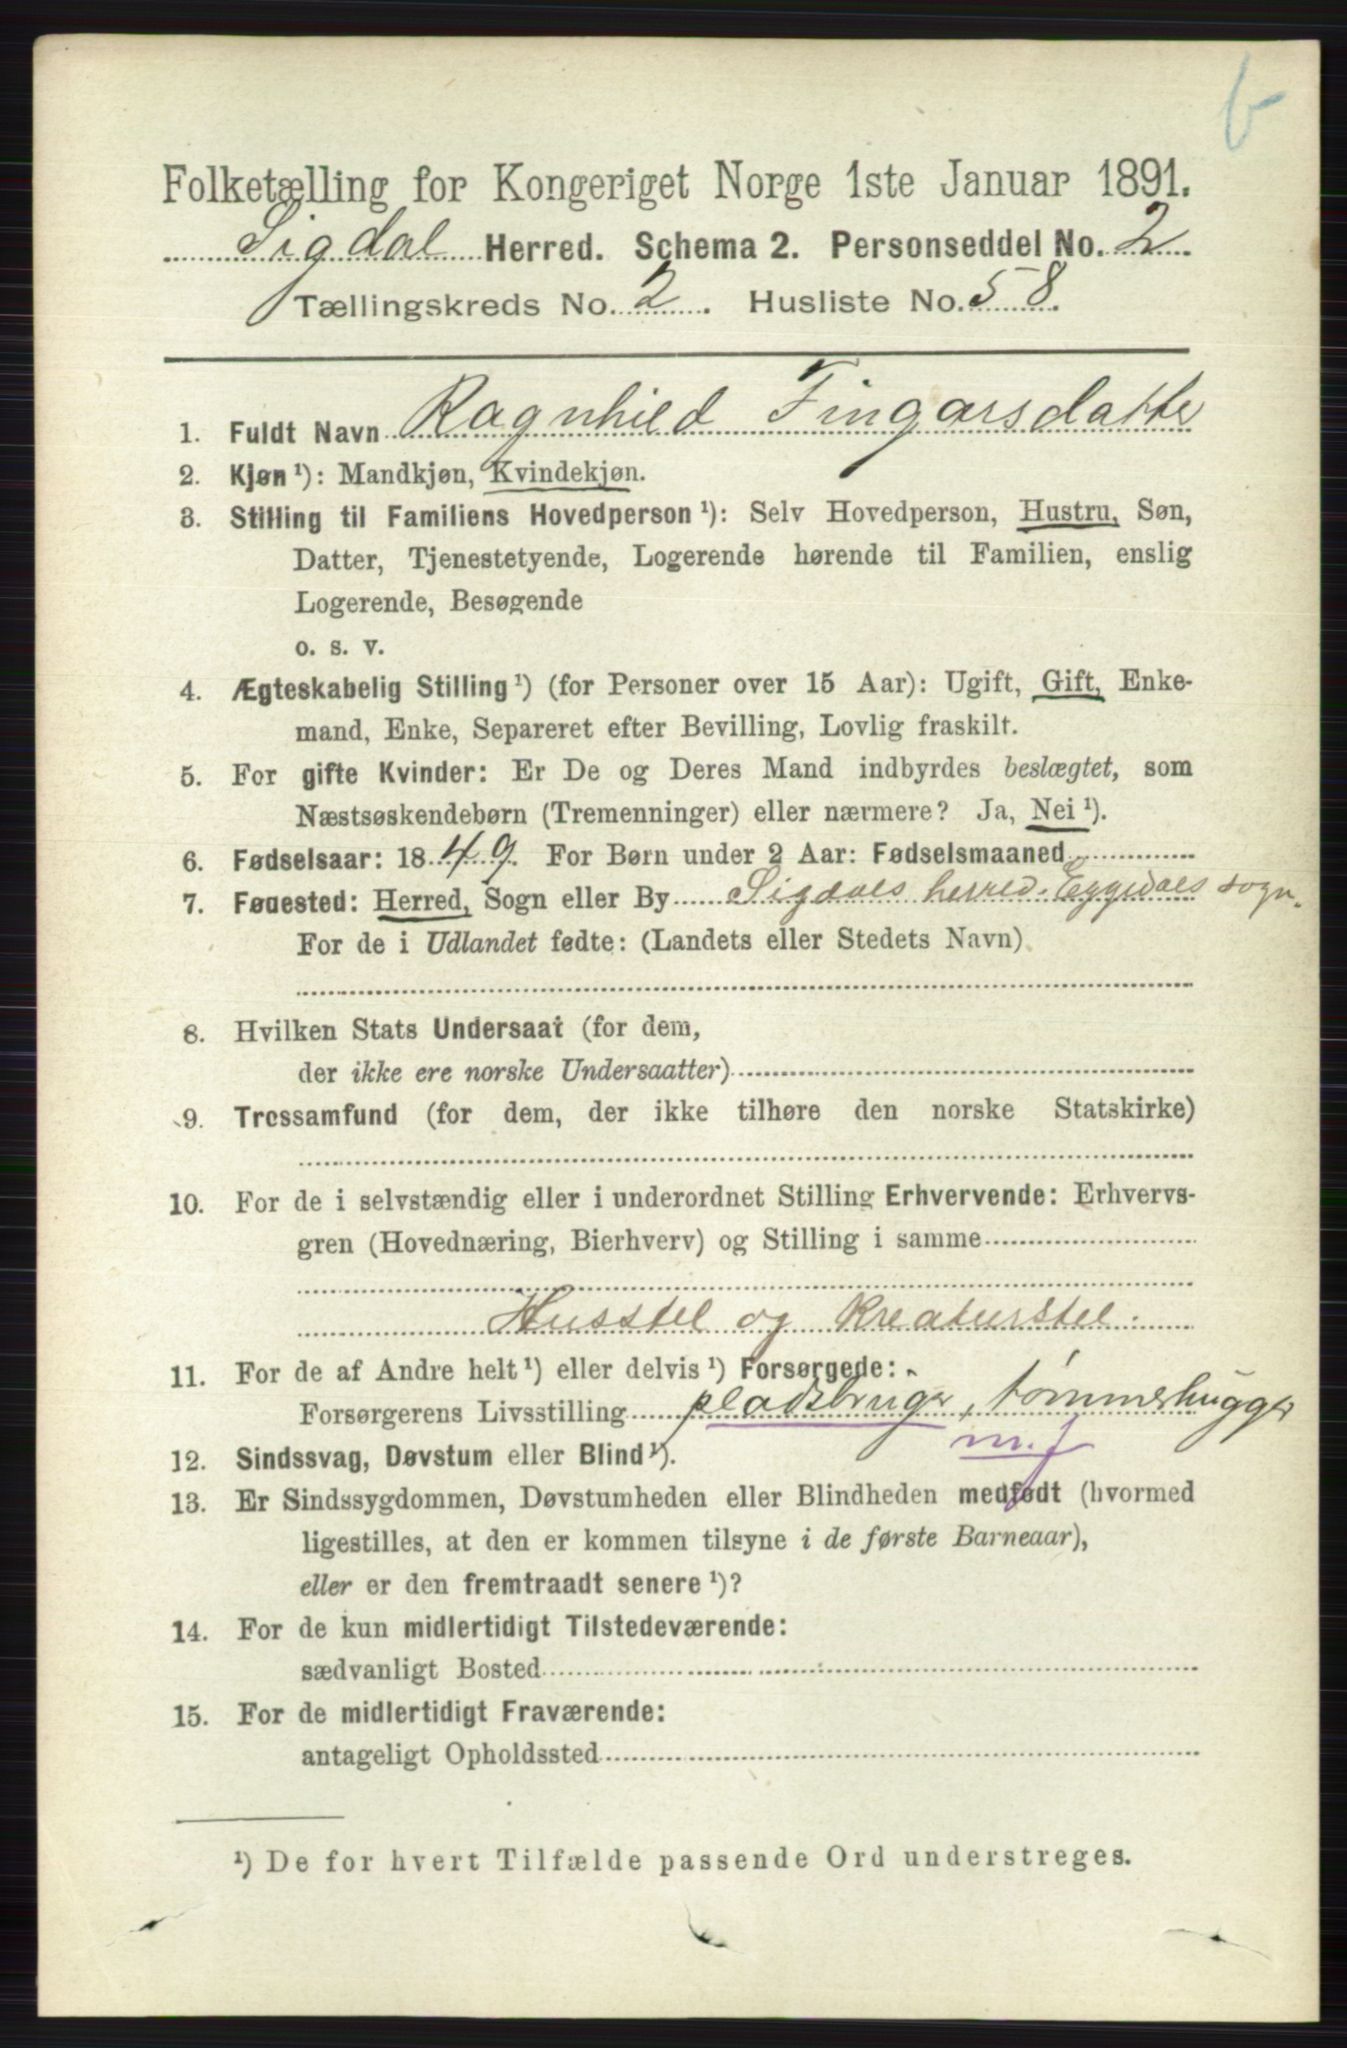 b
Folketælling for Kongeriget Norge 1ste Januar 1891.
Sigdal Herred. Schema 2. Personseddel No. 2.
Tællingskreds No. 2. Husliste No. 58.
1. Fuldt Navn Ragnhild Fingarsdatter
2. Kjøn ¹): Mandkjøn, Kvindekjøn.
3. Stilling til Familiens Hovedperson ¹): Selv Hovedperson, Hustru, Søn,
Datter, Tjenestetyende, Logerende hørende til Familien, enslig
Logerende, Besøgende
o. s. v.
4. Ægteskabelig Stilling ¹) (for Personer over 15 Aar): Ugift, Gift, Enke-
mand, Enke, Separeret efter Bevilling, Lovlig fraskilt.
5. For gifte Kvinder: Er De og Deres Mand indbyrdes beslægtet, som
Næstsøskendebørn (Tremenninger) eller nærmere? Ja, Nei ¹).
6. Fødselsaar: 1849. For Børn under 2 Aar: Fødselsmaaned
7. Føuested: Herred, Sogn eller By Sigdals herred. Eggedals sogn.
For de i Udlandet fødte: (Landets eller Stedets Navn)
8. Hvilken Stats Undersaat (for dem,
der ikke ere norske Undersaatter)
9. Trossamfund (for dem, der ikke tilhøre den norske Statskirke)
10. For de i selvstændig eller i underordnet Stilling Erhvervende: Erhvervs-
gren (Hovednæring, Bierhverv) og Stilling i samme
Husstel og kreaturstel.
11. For de af Andre helt ¹) eller delvis ¹) Forsørgede:
Forsørgerens Livsstilling pladsbruger, tømmerhugger
m. f
12. Sindssvag, Døvstum eller Blind ¹).
13. Er Sindssygdommen, Døvstumheden eller Blindheden medfødt (hvormed
ligestilles, at den er kommen tilsyne i de første Barneaar),
eller er den fremtraadt senere ¹)?
14. For de kun midlertidigt Tilstedeværende:
sædvanligt Bosted
15. For de midlertidigt Fraværende:
antageligt Opholdssted
¹) De for hvert Tilfælde passende Ord understreges.